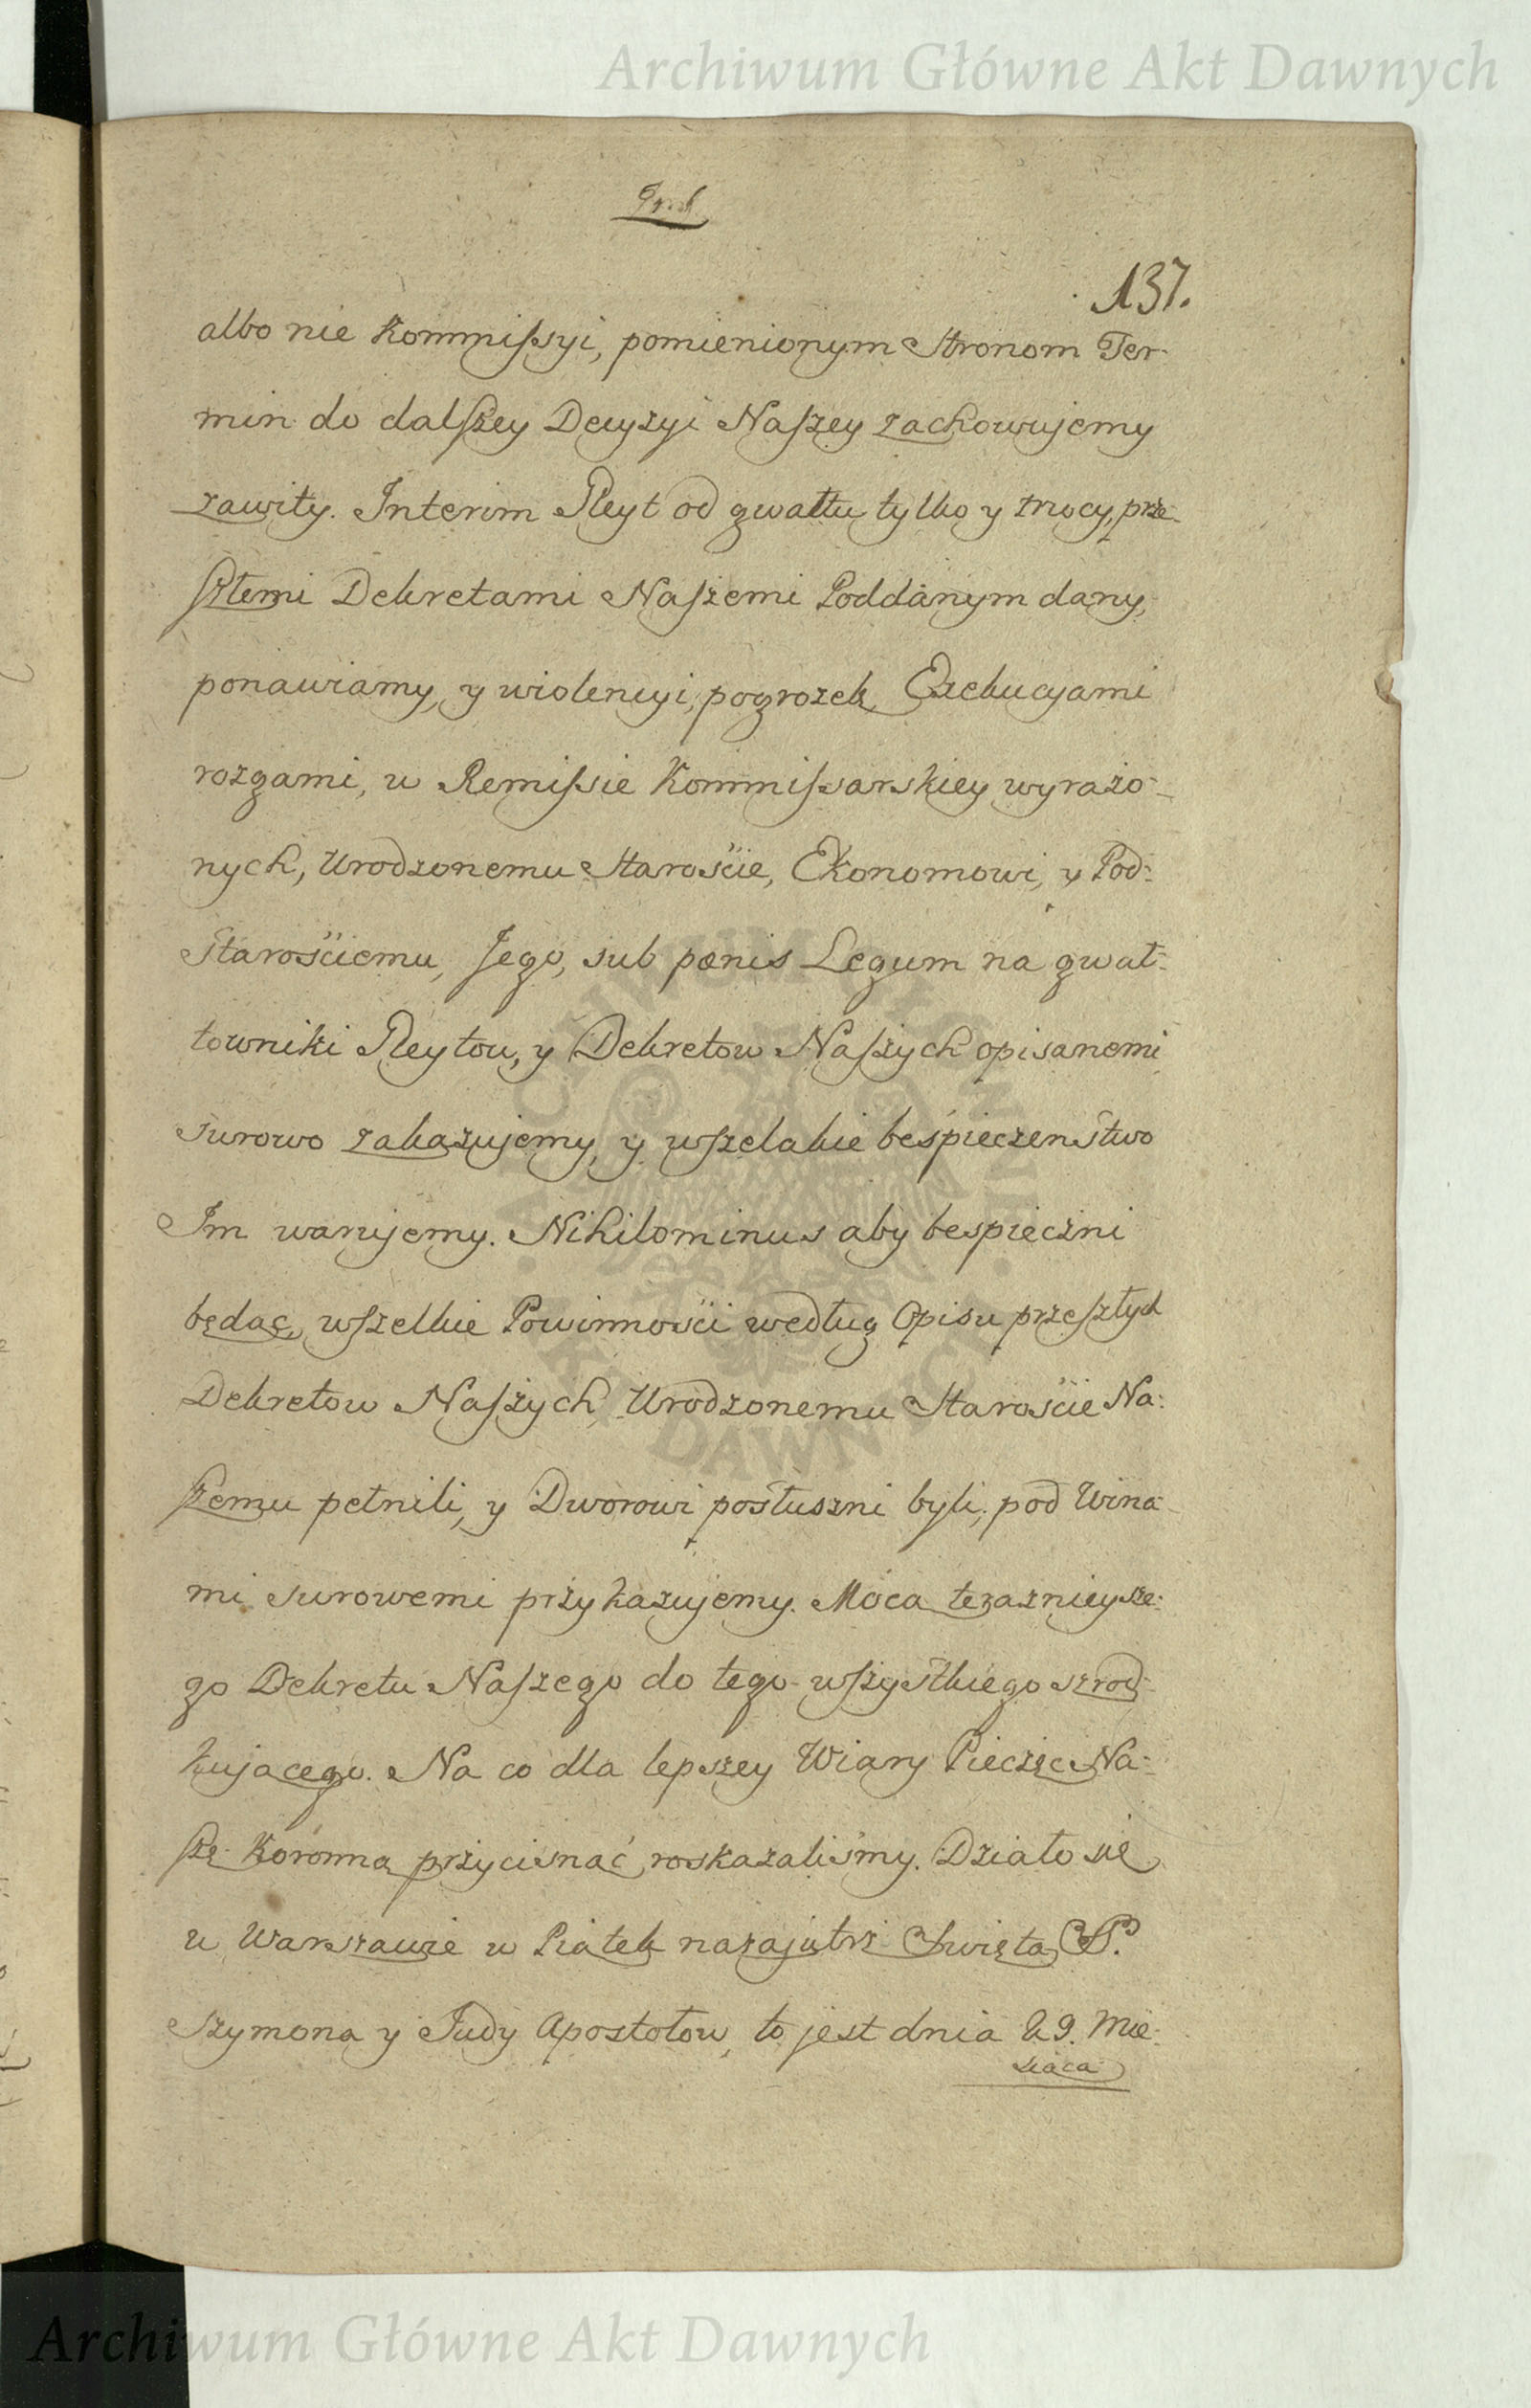 Archiwum Główne Akt Dawnych
137.
albo nie Kommissyi, pomienionym Stronom Ter-
min do dalszey Decyzyi Naszey zachowujemy
zawity. Interim Gleyt od gwałtu tylko y mocy, prze-
szłemi Dekretami Naszemi Poddanym dany,
ponawiamy, y wiolencyi, pogrozek Exekucyami
rozgami, w Remissie Kommissarskiey wyrażo-
nych, Urodzonemu Starościie, Ekonomowi, y Pod-
Starościemu, Jego, sub pœnis Legum na gwał-
towniki Gleytow, y Dekretow Naszych opisanemi
surowo zakazujemy, y wszelakie beśpieczenstwo
Im warujemy. Nihilominus aby bespieczni
będąc, wszelkie Powinnosci według Opisu przeszłych
Dekretow Naszych Urodzonemu Starościie Na-
szemu pełnili, y Dworowi posłuszni byli, pod Wina-
mi surowemi przykazujemy. Mocą terazniejsze-
go Dekretu Naszego do tego wszystkiego szrod-
kującego. Na co dla lepszey Wiary Pieczęć Na-
szę Koronną przycisnąć roskazaliśmy. Działo się
w Warszawie w Piątek nazajutrz Swięta SS.
Szymona y Judy Apostołow, to jest dnia 29. Mie-
siąca
Archiwum Główne Akt Dawnych